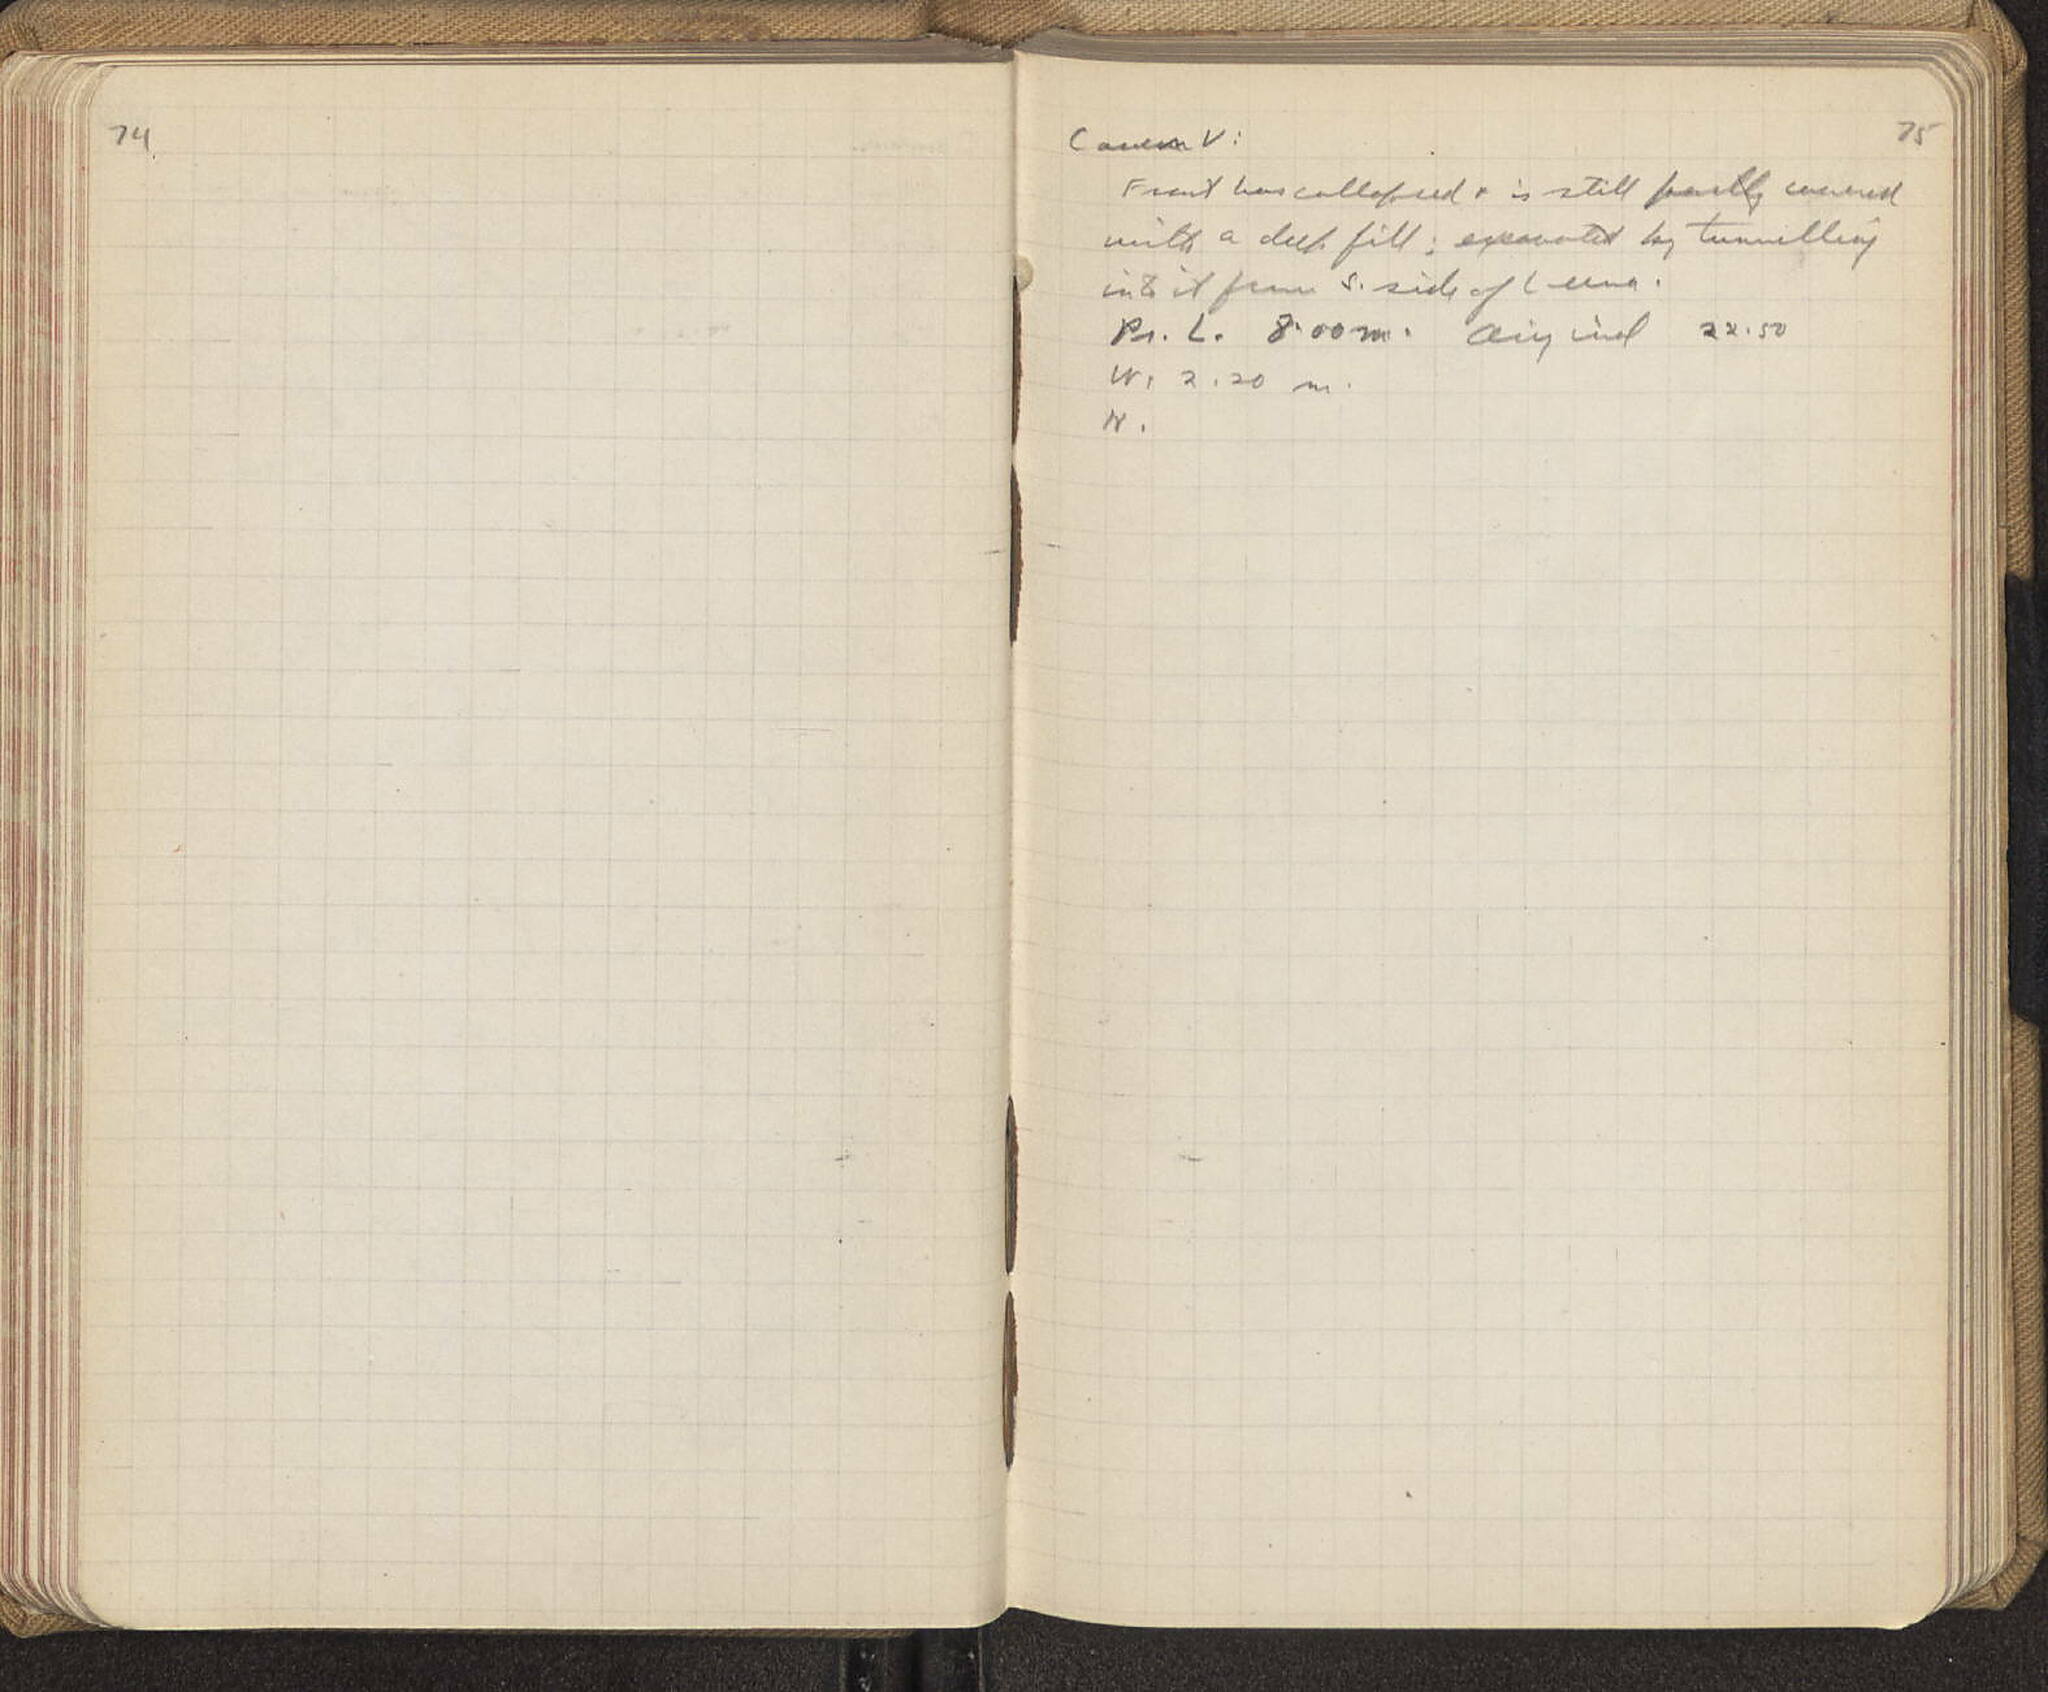 74
75
Cavern V:
Front has collapsed & is still partly covered
with a deep fill; excavated by tunnelling
into it from S. side of
Pr. L. 8.00 m. Original 22.50
W. 2.20 m.
H.